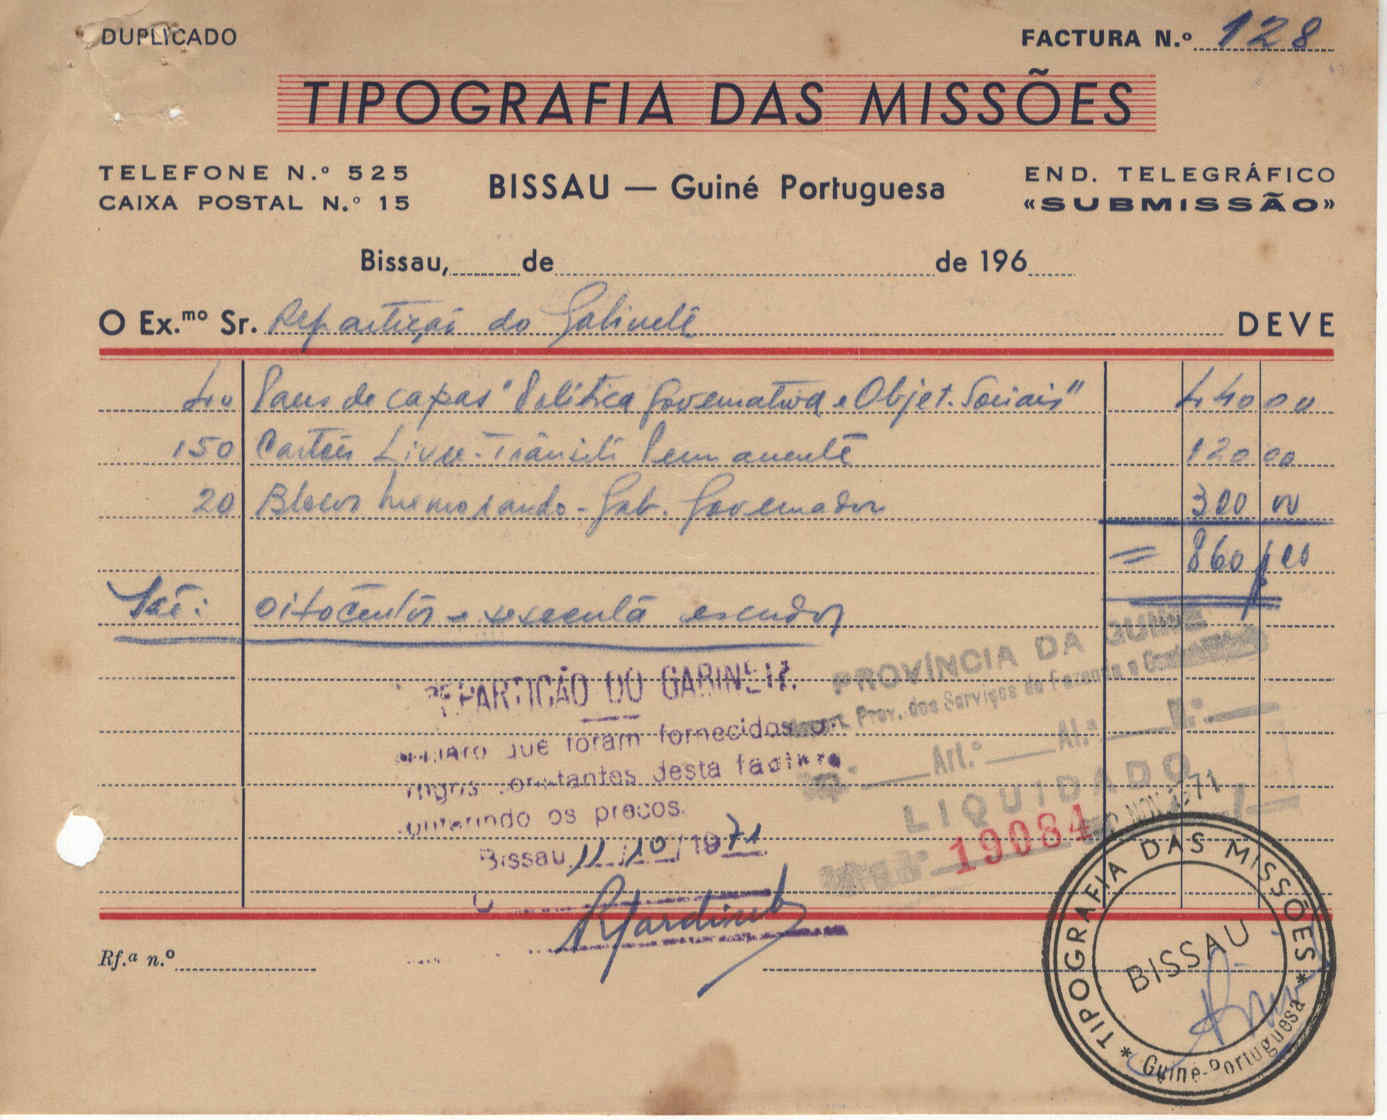 DUPLICADO
FACTURA N.º 128
TIPOGRAFIA DAS MISSÕES
TELEFONE N.º 525
CAIXA POSTAL N.º 15
BISSAU — Guiné Portuguesa
END. TELEGRÁFICO
«SUBMISSÃO»
Bissau, de de 196
O Ex.mo Sr. Repartição do Gabinete DEVE
40 de capas "Política Governativa e Objet. Sociais" 440 00
150 Cartões Livre-Trânsito Permanente 120 00
20 Blocos memorando - Gab. Governador 300 00
= 860
São: oitocentos e sessenta escudos
REPARTIÇÃO DO GABINETE
que foram fornecidos
constantes desta factura
os preços.
Bissau, 11/10/1971
PROVÍNCIA DA GUINÉ
Prov. dos Serviços de Fazenda e Contabilidade
Art.º Al.ª N.º
LIQUIDADO
19084 NOV. 1971
TIPOGRAFIA DAS MISSÕES
BISSAU
* Guiné-Portuguesa *
Rf.ª n.º